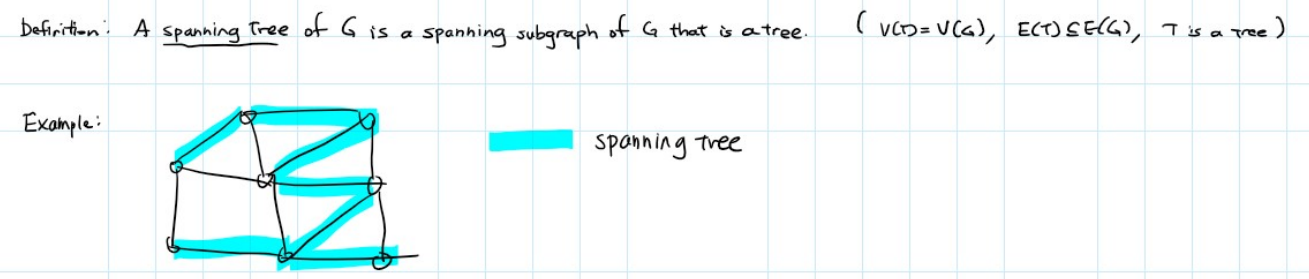 Definition: A spanning Tree of G is a spanning subgraph of G that is a tree. ( V(T) = V(G), E(T) ⊆ E(G), T is a Tree )
Example:
spanning tree